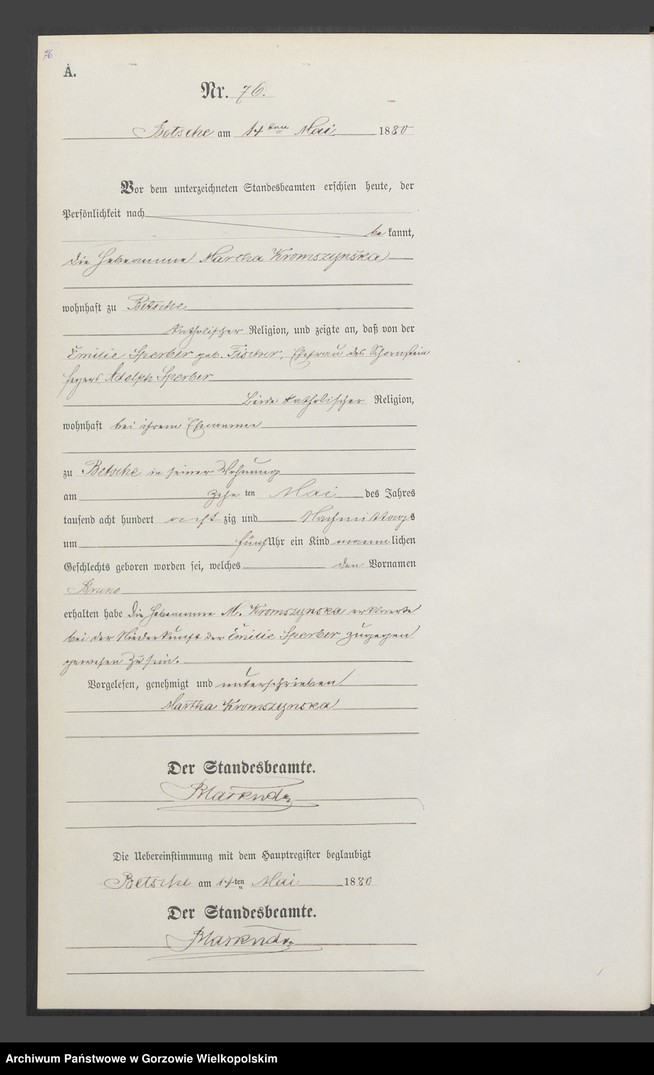 76
A.
Nr. 76.
Betsche am 14ten Mai 1880
Vor dem unterzeichneten Standesbeamten erschien heute, der
Persönlichkeit nach
be kannt,
die Hebeamme Martha Kromszynska
wohnhaft zu Betsche
katholischer Religion, und zeigte an, daß von der
Emilie Sperber geb. Fischer, Ehefrau des Schornstein
fegers Adolph Sperber
Beide katholischer Religion,
wohnhaft bei ihrem Ehemanne
zu Betsche in seiner Wohnung
am ten Mai des Jahres
tausend acht hundert acht zig und Nachmittags
um fünf Uhr ein Kind männlichen
Geschlechts geboren worden sei, welches den Vornamen
Bruno
erhalten habe die Hebeamme M. Kromszynska erklärte
bei der Niederkunft der Emilie Sperber zugegen
gewesen zu sein.
Vorgelesen, genehmigt und unterschrieben
Martha Kromszynska
Der Standesbeamte.
Die Uebereinstimmung mit dem Hauptregister beglaubigt
Betsche am 14ten Mai 1880
Der Standesbeamte.
Archiwum Państwowe w Gorzowie Wielkopolskim